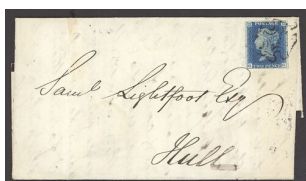 POSTAGE
TWO PENCE
Saml. Lightfoot Esq
Hull